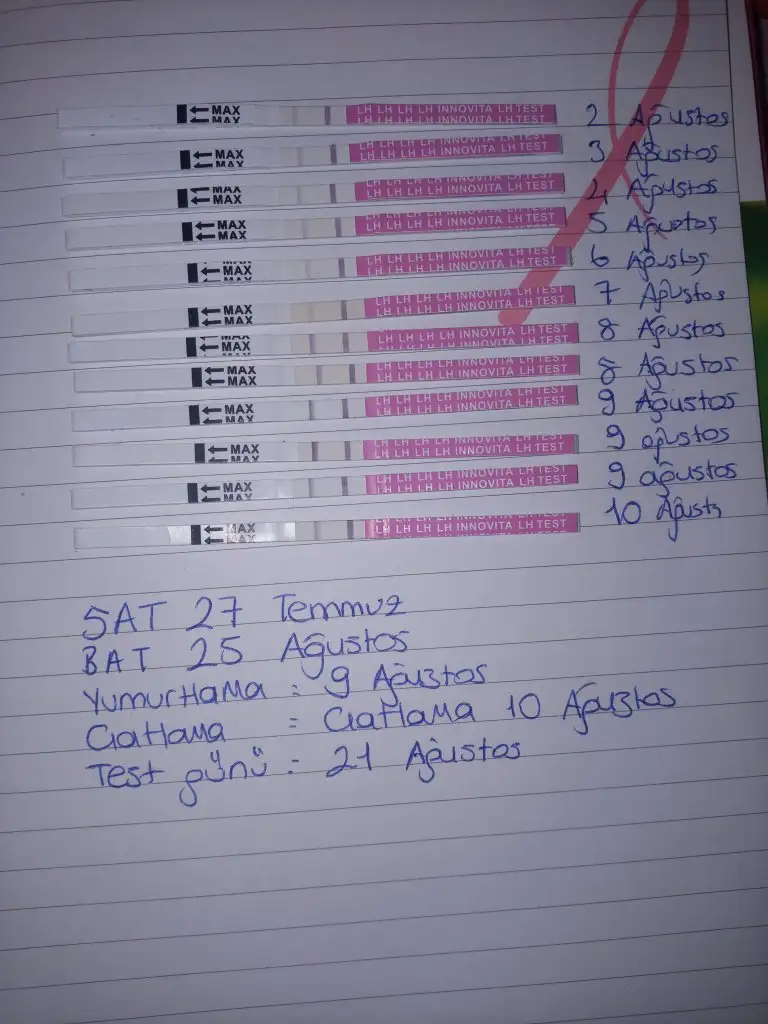 MAX LH LH LH LH INNOVITA LH TEST 2 Ağustos
MAX LH LH LH LH INNOVITA LH TEST 3 Ağustos
MAX LH LH LH LH INNOVITA LH TEST 4 Ağustos
MAX LH LH LH LH INNOVITA LH TEST 5 Ağustos
MAX LH LH LH LH INNOVITA LH TEST 6 Ağustos
MAX LH LH LH LH INNOVITA LH TEST 7 Ağustos
MAX LH LH LH LH INNOVITA LH TEST 8 Ağustos
MAX LH LH LH LH INNOVITA LH TEST 8 Ağustos
MAX LH LH LH LH INNOVITA LH TEST 9 Ağustos
MAX LH LH LH LH INNOVITA LH TEST 9 ağustos
MAX LH LH LH LH INNOVITA LH TEST 9 ağustos
MAX LH LH LH LH INNOVITA LH TEST 10 Ağusts
SAT 27 Temmuz
BAT 25 Ağustos
Yumurtlama : 9 Ağustos
Çatlama = Çatlama 10 Ağustos
Test günü : 21 Ağustos